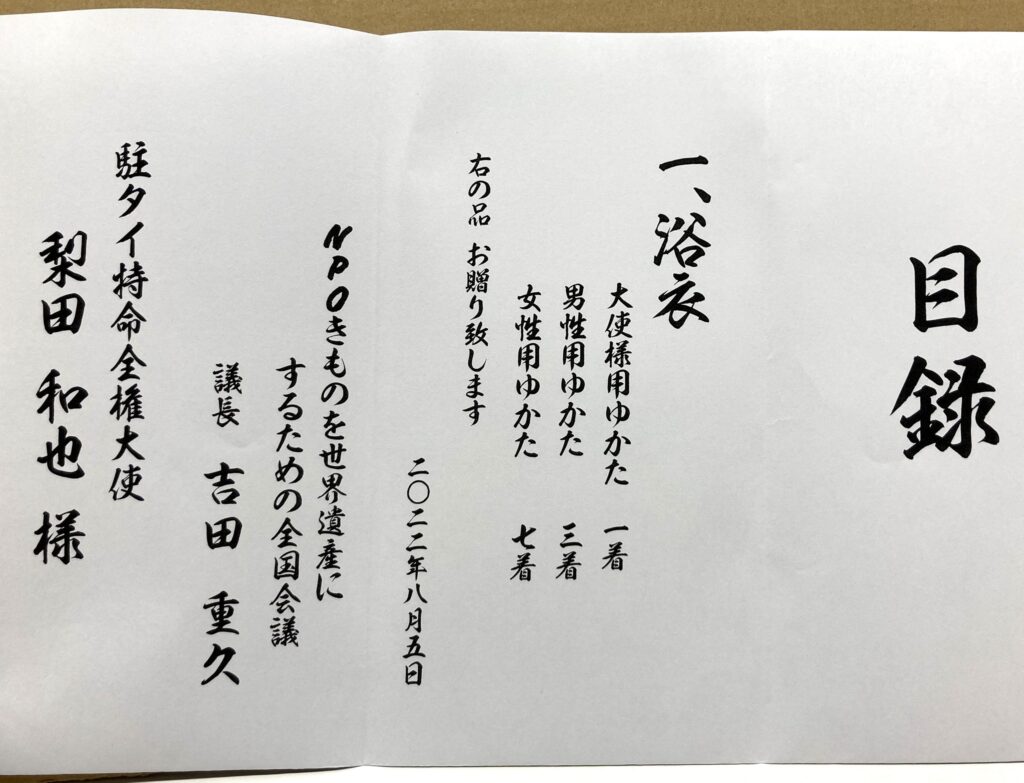 目録
一、浴衣
大使様用ゆかた 一着
男性用ゆかた 三着
女性用ゆかた 七着
右の品 お贈り致します
二〇二二年八月五日
NPOきものを世界遺産に
するための全国会議
議長 吉田 重久
駐タイ特命全権大使
梨田 和也 様